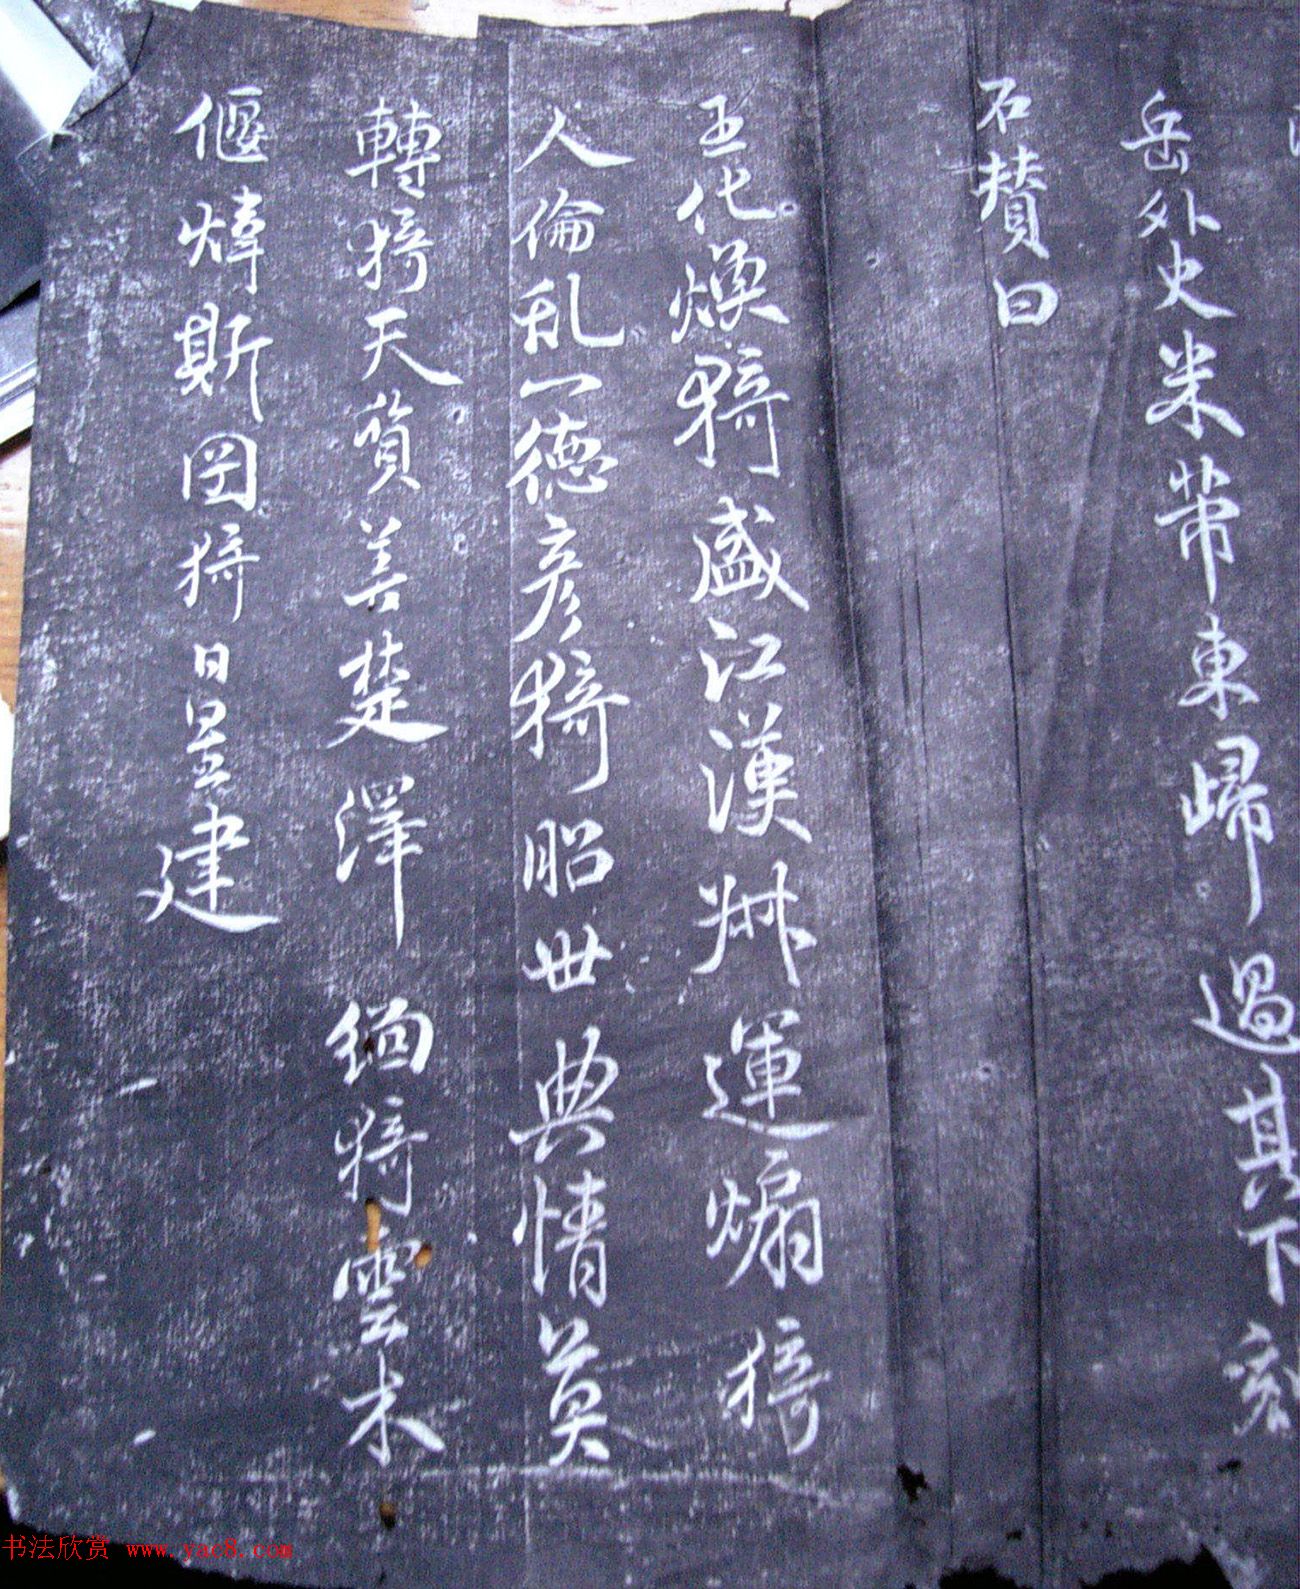 岳外史米芾東歸過其下刻
石賛曰
王化煥猗盛江漢叶運煽猗
人倫乱一德彦猗昭世典情莫
轉猗天質美楚澤緬猗雲木
偃煒斯囯猗日星建
书法欣赏 www.yac8.com